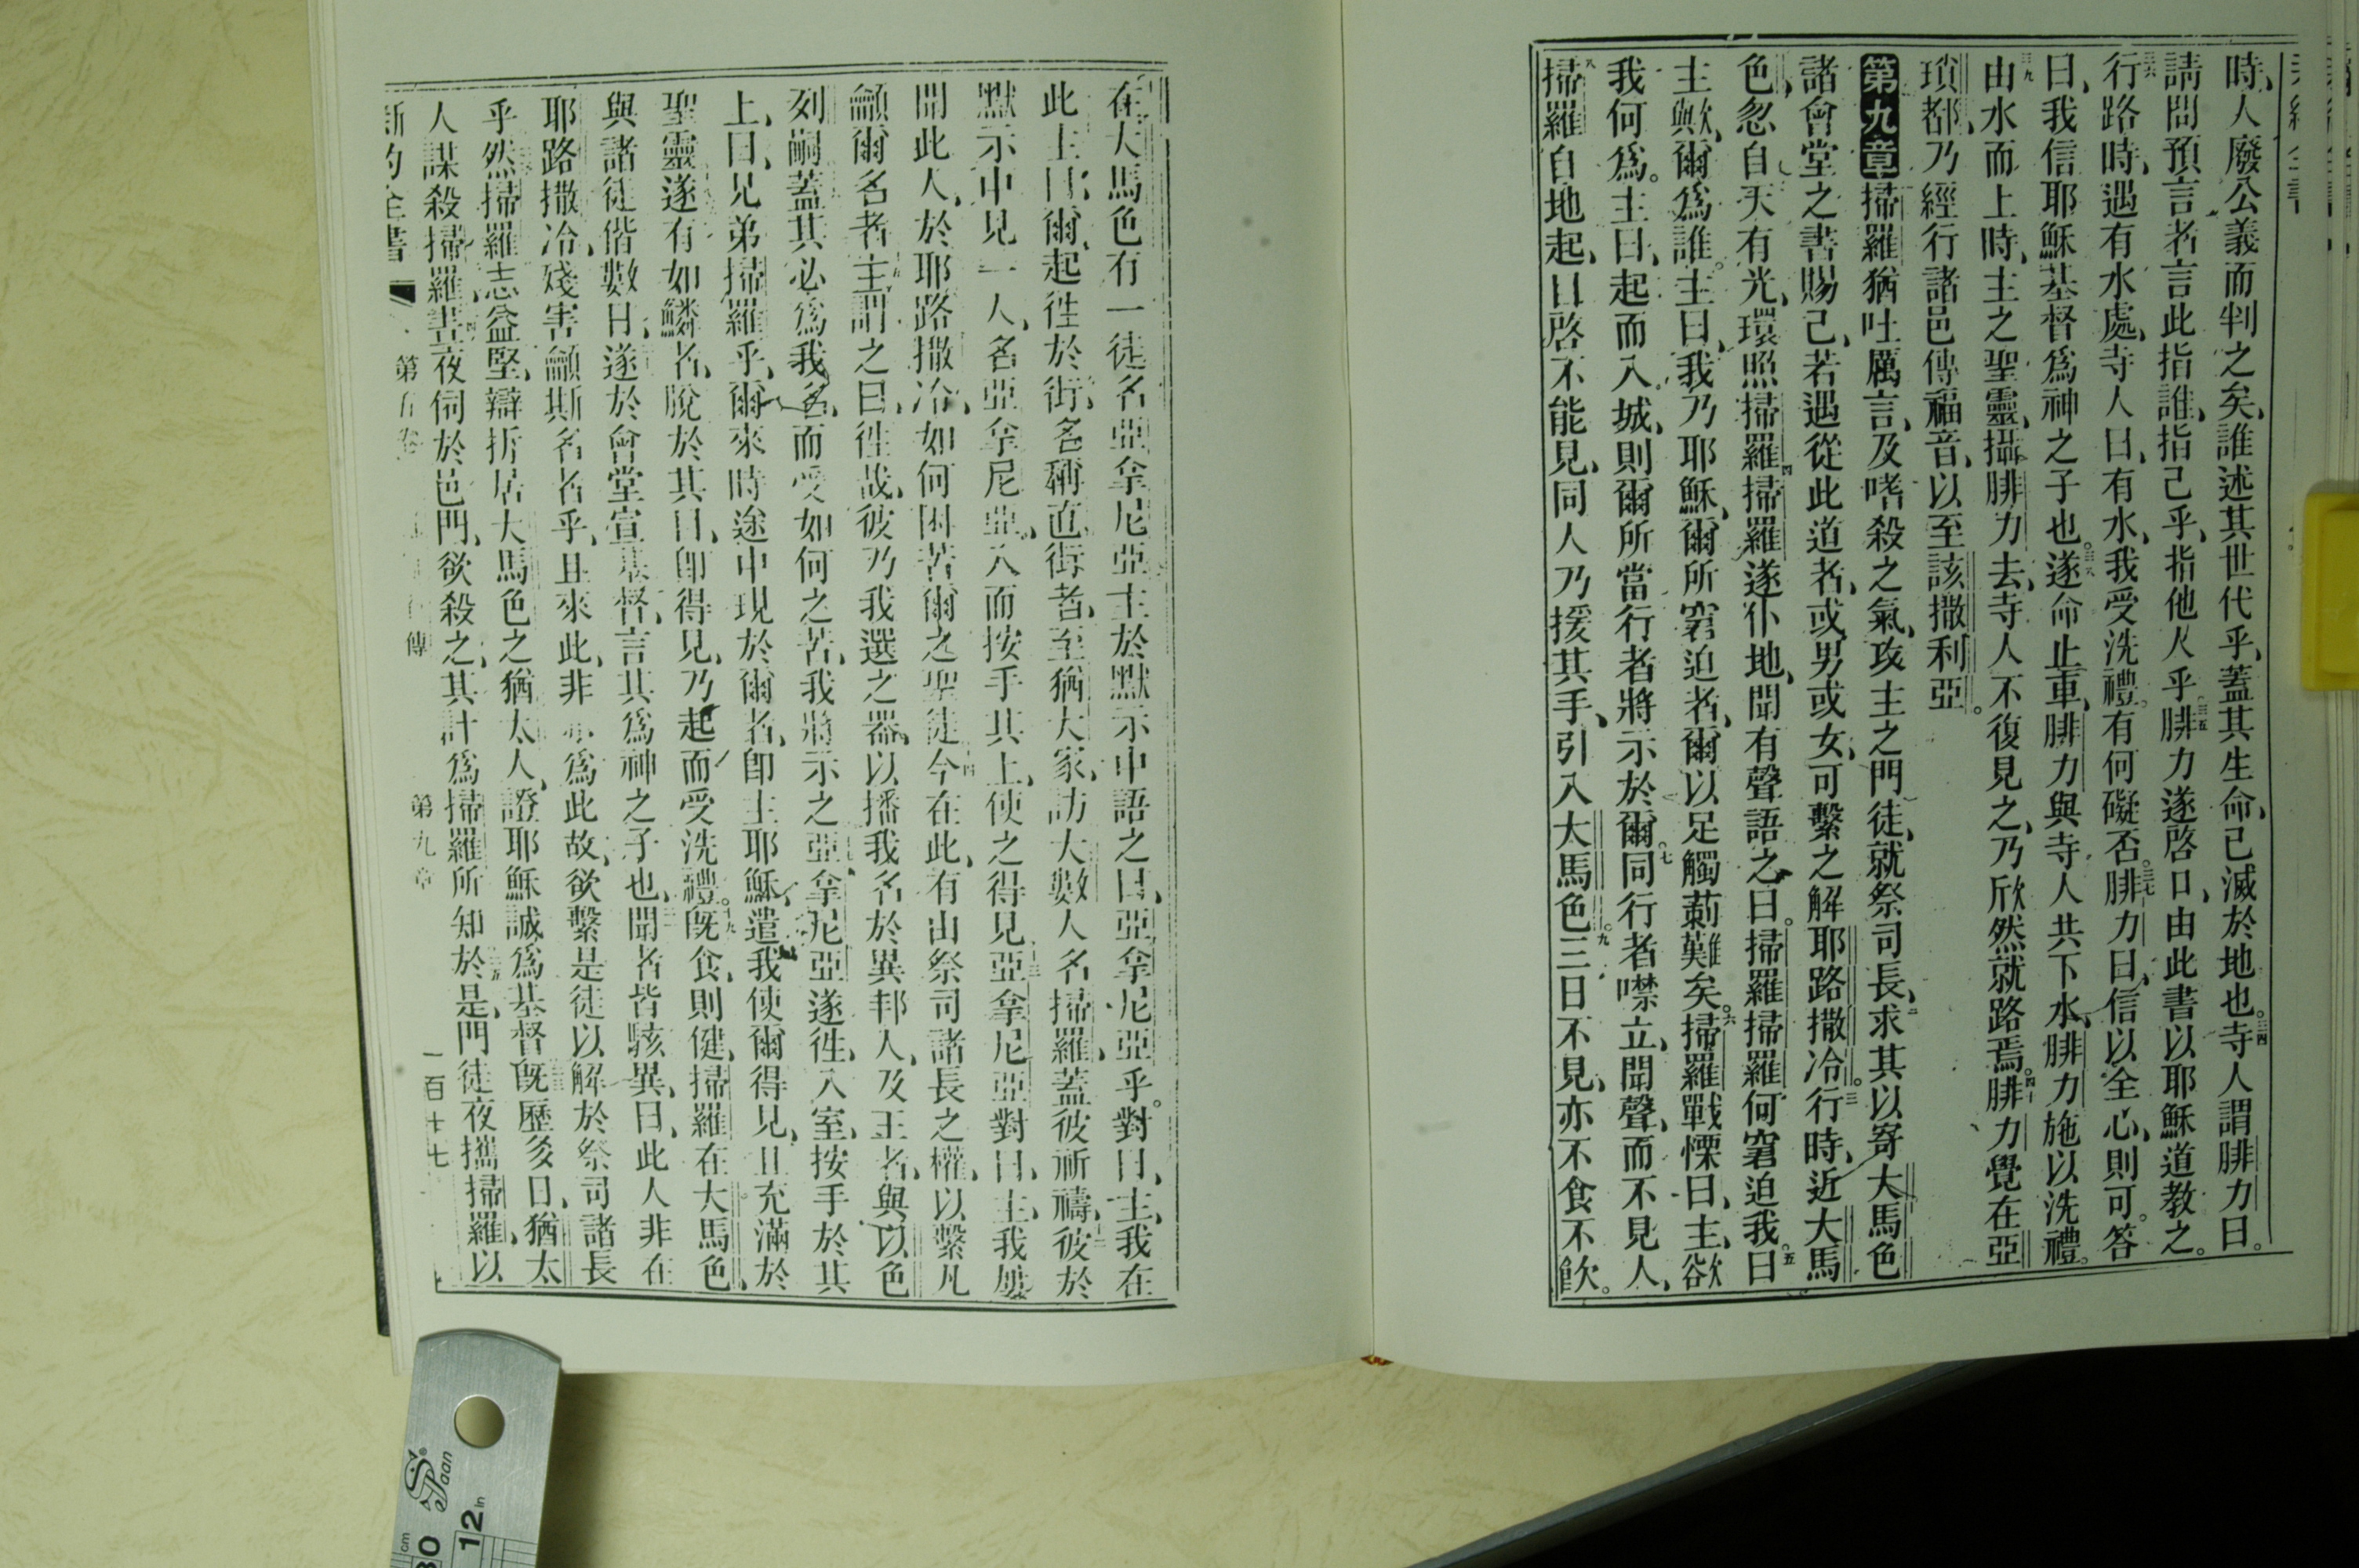 時、人廢公義而判之矣、誰述其世代乎、蓋其生命、已滅於地也。三四寺人謂腓力曰。
請問預言者言此指誰、指己乎、指他人乎三五腓力遂啓口、由此書以耶穌道教之。
三六行路時、遇有水處、寺人曰、有水、我受洗禮。有何礙否。三七腓力曰、信以全心、則可。答
曰、我信耶穌基督爲神之子也。三八遂命止車、腓力與寺人共下水、腓力施以洗禮。
三九由水而上時、主之聖靈、攝腓力去、寺人不復見之、乃欣然就路焉。四十腓力覺在亞
瑣都、乃經行諸邑傳福音、以至該撒利亞。
第九章掃羅猶吐厲言、及嗜殺之氣、攻主之門徒、就祭司長、二求其以寄大馬色
諸會堂之書賜己、若遇從此道者、或男或女、可繫之解耶路撒冷。三行時、近大馬
色、忽自天有光、環照掃羅四掃羅遂仆地、聞有聲語之曰。掃羅掃羅何窘迫我。五曰
主歟、爾爲誰。主曰、我乃耶穌、爾所窘迫者、爾以足觸䓶難矣。六掃羅戰慄曰、主、欲
我何爲。主曰、起而入城、則爾所當行者將示於爾。七同行者噤立、聞聲、而不見人、
八掃羅自地起、目啓不能見、同人乃援其手、引入大馬色。九三日不見、亦不食不飲。
在大馬色有一徒名亞拿尼亞主於默示中語之曰、亞拿尼亞乎。對曰、主、我在
此主曰、爾、起徃於街、名稱直街者、至猶大家、訪大數人名掃羅、蓋彼祈禱、十二彼於
默示中見一人、名亞拿尼亞、入而按手其上、使之得見十三亞拿尼亞對曰、主、我屢
聞此人、於耶路撒冷、如何困苦爾之聖徒十四今在此、有由祭司諸長之權、以繫凡
籲爾名者十五主謂之曰、徃哉、彼乃我選之器、以播我名於異邦人、及王者、與以色
列嗣蓋其必爲我名、而受如何之苦、我將示之亞拿尼亞遂徃、入室、按手於其
上、曰、兄弟掃羅乎、爾來時途中現於爾者、卽主耶穌、遣我使爾得見、且充滿於
聖靈遂有如鱗者、脫於其目、卽得見、乃起而受洗禮。十九旣食、則健、掃羅在大馬色、
與諸徒偕數日、遂於會堂宣基督、言其爲神之子也、聞者皆駭異、曰、此人非在
耶路撒冷、殘害籲斯名者乎、且來此、非爲此故、欲繫是徒以解於祭司諸長
乎然掃羅志益堅、辯折居大馬色之猶太人、證耶穌誠爲基督旣歷多日、猶太
人謀殺掃羅、晝夜伺於邑門、欲殺之、其計爲掃羅所知於是、門徒夜攜掃羅、以
新約全書 第五卷 傳 第九章 一百十七